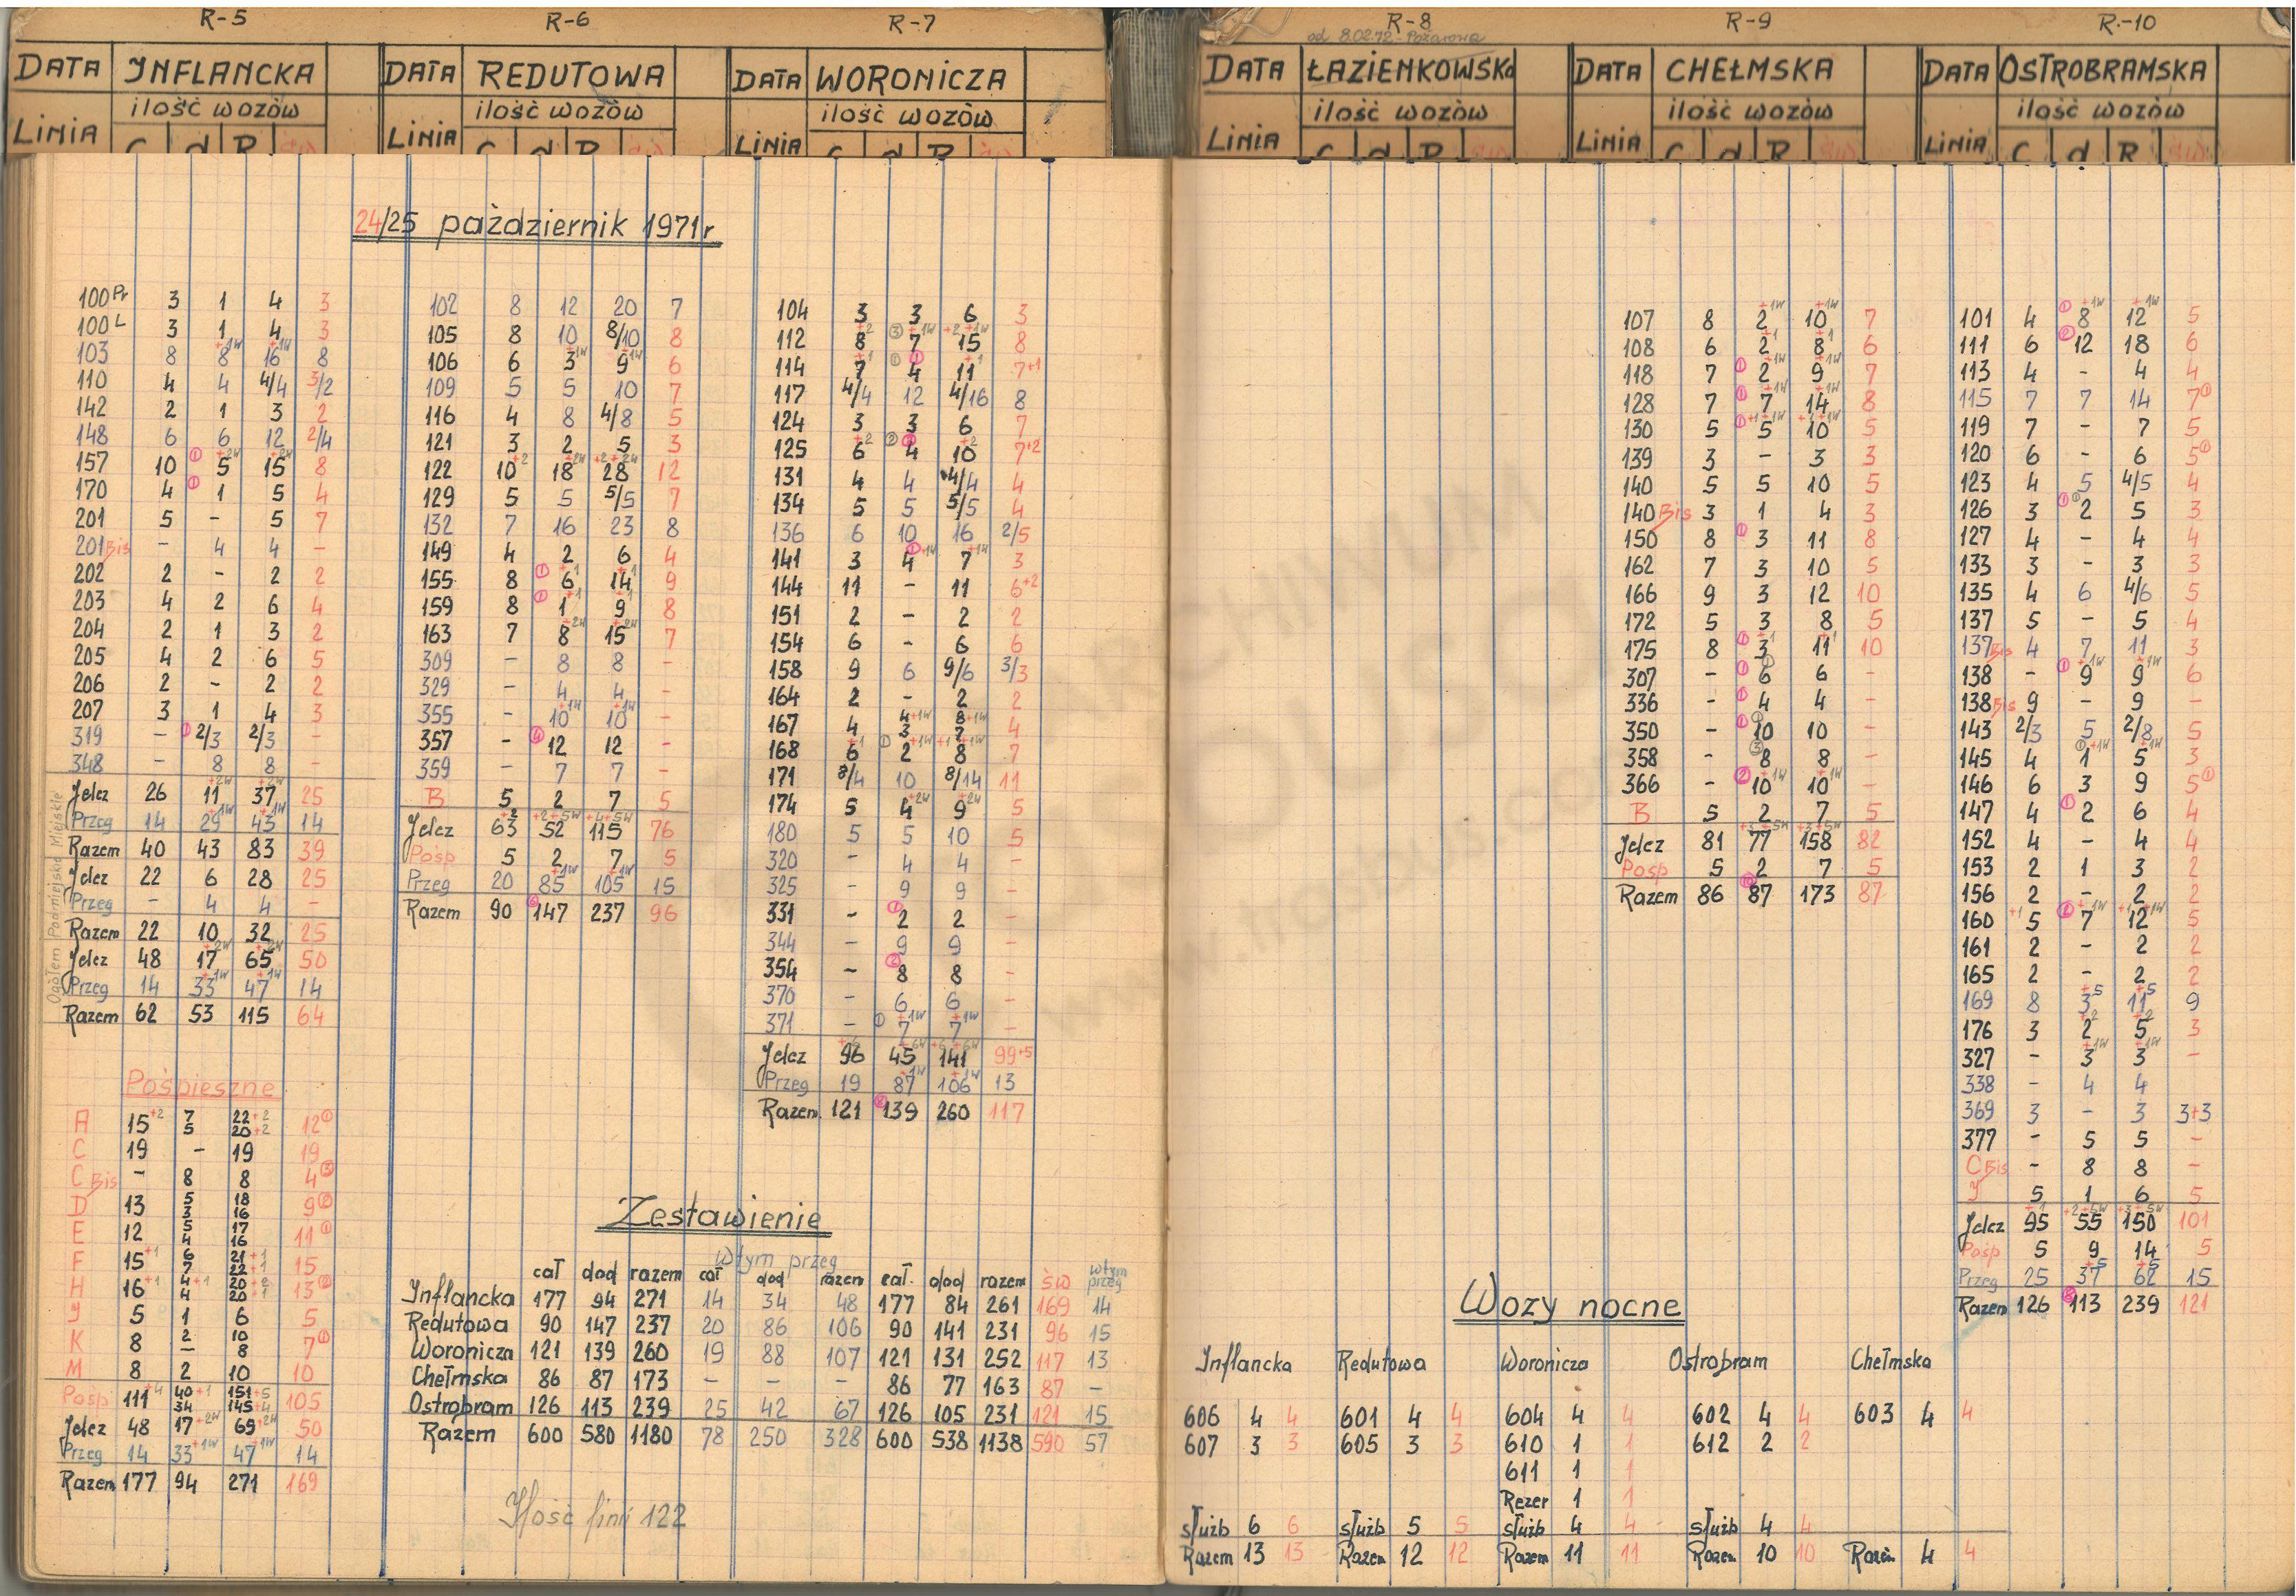 R-5
DATA INFLANCKA
ilość wozów
LINIA C d R św
R-6
DATA REDUTOWA
ilość wozów
LINIA C d R św
R-7
DATA WORONICZA
ilość wozów
LINIA C d R św
R-8
od 8.02.72 - Pożarowa
DATA ŁAZIENKOWSKA
ilość wozów
LINIA C d R św
R-9
DATA CHEŁMSKA
ilość wozów
LINIA C d R św
R-10
DATA OSTROBRAMSKA
ilość wozów
LINIA C d R św
24/25 październik 1971r
100 Pr 3 1 4 3
100 L 3 1 4 3
103 8 8+1W 16+1W 8
110 4 4 4/4 3/2
142 2 1 3 2
148 6 6 12 2/4
157 10 ① 5+2W 15+2W 8
170 4 ① 1 5 4
201 5 - 5 7
201 Bis - 4 4 -
202 2 - 2 2
203 4 2 6 4
204 2 1 3 2
205 4 2 6 5
206 2 - 2 2
207 3 1 4 3
319 - ① 2/3 2/3 -
348 - 8 8 -
Jelcz 26 11+2W 37+2W 25
Przeg 14 29+1W 43+1W 14
Razem 40 43 83 39
Jelcz 22 6 28 25
Przeg - 4 4 -
Razem 22 10 32 25
Jelcz 48 17+2W 65+2W 50
Przeg 14 33+1W 47+1W 14
Razem 62 53 115 64
Ogółem Podmiejskie Miejskie
Pośpieszne
A 15+2 7 22+2 12①
5 20+2
C 19 - 19 19
C Bis - 8 8 4③
D 13 5 18 9②
3 16
E 12 5 17 11①
4 16
F 15+1 6 21+1 15
7 22+1
H 16+1 4+1 20+2 13②
4 20+1
J 5 1 6 5
K 8 2 10 7①
- 8
M 8 2 10 10
Pośp 111+4 40+1 151+5 105
34 145+4
Jelcz 48 17+2W 69+2W 50
Przeg 14 33+1W 47+1W 14
Razem 177 94 271 169
102 8 12 20 7
105 8 10 8/10 8
106 6 3+1W 9+1W 6
109 5 5 10 7
116 4 8 4/8 5
121 3 2 5 3
122 10+2 18+2W 28+2+2W 12
129 5 5 5/5 7
132 7 16 23 8
149 4 2 6 4
155 8 ① 6+1 14+1 9
159 8 ① 1+1 9+1 8
163 7 8+2W 15+2W 7
309 - 8 8 -
329 - 4 4 -
355 - 10+1W 10+1W -
357 - ④ 12 12 -
359 - 7 7 -
B 5 2 7 5
Jelcz 63+2 52+2+5W 115+4+5W 76
Pośp 5 2 7 5
Przeg 20 85+1W 105+1W 15
Razem 90 ⑥ 147 237 96
104 3 3 6 3
112 8+2 ③ 7+1W 15+2+1W 8
114 7+1 ① ① 4 11+1 7+1
117 4/4 12 4/16 8
124 3 3 6 7
125 6+2 ② ② 4 10+2 7+2
131 4 4 4/4 4
134 5 5 5/5 4
136 6 10 16 2/5
141 3 ① 4+1W 7+1W 3
144 11 - 11 6+2
151 2 - 2 2
154 6 - 6 6
158 9 6 9/6 3/3
164 2 - 2 2
167 4 4+1W 8+1W 4
3 7
168 6+1 ① 2+1W 8+1+1W 7
171 8/4 10 8/14 11
174 5 4+2W 9+2W 5
180 5 5 10 5
320 - 4 4 -
325 - 9 9 -
331 - ① 2 2 -
344 - 9 9 -
354 - ② 8 8 -
370 - 6 6 -
371 - ① 7+1W 7+1W -
Jelcz 96+6 45+6W 141+6+6W 99+5
Przeg 19 87+1W 106+1W 13
Razem 121 ⑧ 139 260 117
107 8 2+1W 10+1W 7
108 6 2+1 8+1 6
118 7 ① 2+1W 9+1W 7
128 7 ① 7+1W 14+1W 8
130 5 ① 5+1+1W 10+1+1W 5
139 3 - 3 3
140 5 5 10 5
140 Bis 3 1 4 3
150 8 ① 3 11 8
162 7 3 10 5
166 9 3 12 10
172 5 3 8 5
175 8 ① 3+1 11+1 10
307 - ① ① 6 6 -
336 - ① 4 4 -
350 - ① ① 10 10 -
358 - ③ 8 8 -
366 - ② 10+1W 10+1W -
B 5 2 7 5
Jelcz 81 77+3+5W 158+3+5W 82
Pośp 5 2 7 5
Razem 86 ⑩ 87 173 87
101 4 ① 8+1W 12+1W 5
111 6 ② 12 18 6
113 4 - 4 4
115 7 7 14 7①
119 7 - 7 5
120 6 - 6 5①
123 4 5 4/5 4
126 3 ① ① 2 5 3
127 4 - 4 4
133 3 - 3 3
135 4 6 4/6 5
137 5 - 5 4
137 Bis 4 7 11 3
138 - ① 9+1W 9+1W 6
138 Bis 9 - 9 -
143 2/3 5 2/8 5
145 4 ① 1+1W 5+1W 3
146 6 3 9 5①
147 4 ① 2 6 4
152 4 - 4 4
153 2 1 3 2
156 2 - 2 2
160 +1 5 ② 7+1W 12+1+1W 5
161 2 - 2 2
165 2 - 2 2
169 8 3+5 11+5 9
176 3 2+2 5+2 3
327 - 3+1W 3+1W -
338 - 4 4
369 3 - 3 3+3
377 - 5 5 -
C Bis - 8 8 -
J 5 1 6 5
Jelcz 95+1 55+2+5W 150+3+5W 101
Pośp 5 9 14 5
Przeg 25 37+5 62+5 15
Razem 126 ⑧ 113 239 121
Zestawienie
wtym przeg
cał dod razem cał dod razem cał. dod razem św wtym przeg
Inflancka 177 94 271 14 34 48 177 84 261 169 14
Redutowa 90 147 237 20 86 106 90 141 231 96 15
Woronicza 121 139 260 19 88 107 121 131 252 117 13
Chełmska 86 87 173 - - - 86 77 163 87 -
Ostrobram 126 113 239 25 42 67 126 105 231 121 15
Razem 600 580 1180 78 250 328 600 538 1138 590 57
Ilość linii 122
Wozy nocne
Inflancka Redutowa Woronicza Ostrobram Chełmska
606 4 4 601 4 4 604 4 4 602 4 4 603 4 4
607 3 3 605 3 3 610 1 1 612 2 2
611 1 1
Rezer 1 1
służb 6 6 służb 5 5 służb 4 4 służb 4 4
Razem 13 13 Razem 12 12 Razem 11 11 Razem 10 10 Razem 4 4